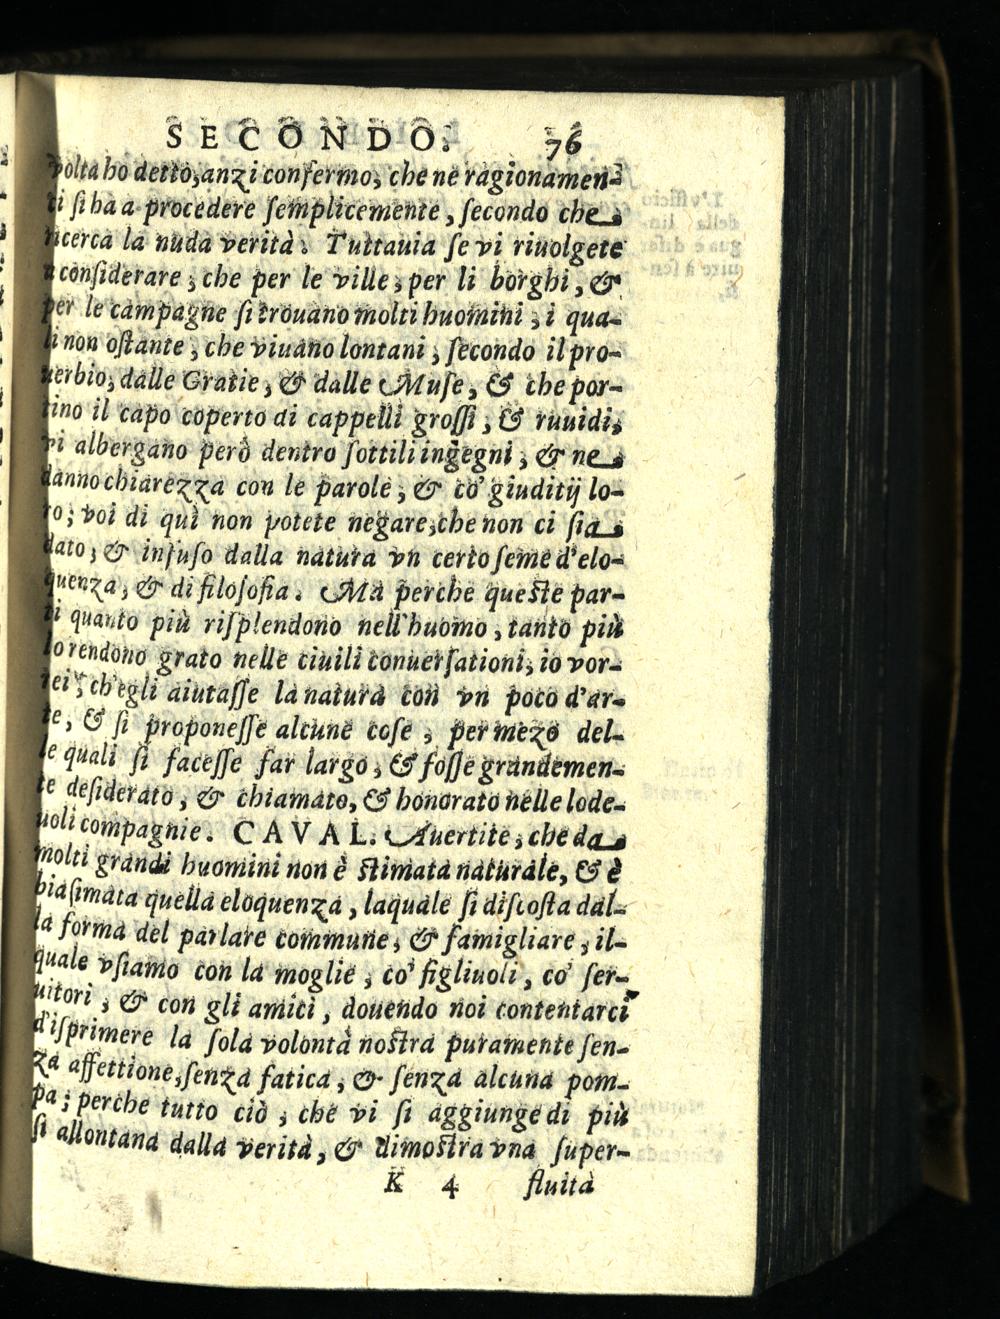 SECONDO. 76
volta ho detto, anzi confermo, che ne ragionamen-
ti ſi ha a procedere ſemplicemente, ſecondo che
ricerca la nuda verità. Tuttauia ſe vi riuolgete
a conſiderare, che per le ville, per li borghi, &
per le campagne ſi trouano molti huomini, i qua-
li non oſtante, che viuano lontani, ſecondo il pro-
uerbio, dalle Gratie, & dalle Muſe, & che por-
tino il capo coperto di cappelli groſſi, & ruuidi,
vi albergano però dentro ſottili ingegni, & ne
danno chiarezza con le parole, & co' giuditij lo-
ro; voi di quì non potete negare, che non ci ſia
dato, & infuſo dalla natura vn certo ſeme d'elo-
quenza, & di filoſofia. Ma perche queſte par-
ti quanto più riſplendono nell'huomo, tanto più
lo rendono grato nelle ciuili conuerſationi, io vor-
rei, ch'egli aiutaſſe la natura con vn poco d'ar-
te, & ſi proponeſſe alcune coſe, per mezo del-
le quali ſi faceſſe far largo, & foſſe grandemen-
te deſiderato, & chiamato, & honorato nelle lode-
uoli compagnie. CAVAL. Auertite, che da
molti grandi huomini non è ſtimata naturale, & è
biaſimata quella eloquenza, laquale ſi diſcoſta dal-
la forma del parlare commune, & famigliare, il-
quale vſiamo con la moglie, co' figliuoli, co' ſer-
uitori, & con gli amici, douendo noi contentarci
d'iſprimere la ſola volontà noſtra puramente ſen-
za affettione, ſenza fatica, & ſenza alcuna pom-
pa; perche tutto ciò, che vi ſi aggiunge di più
ſi allontana dalla verità, & dimoſtra vna ſuper-
K 4 fluità